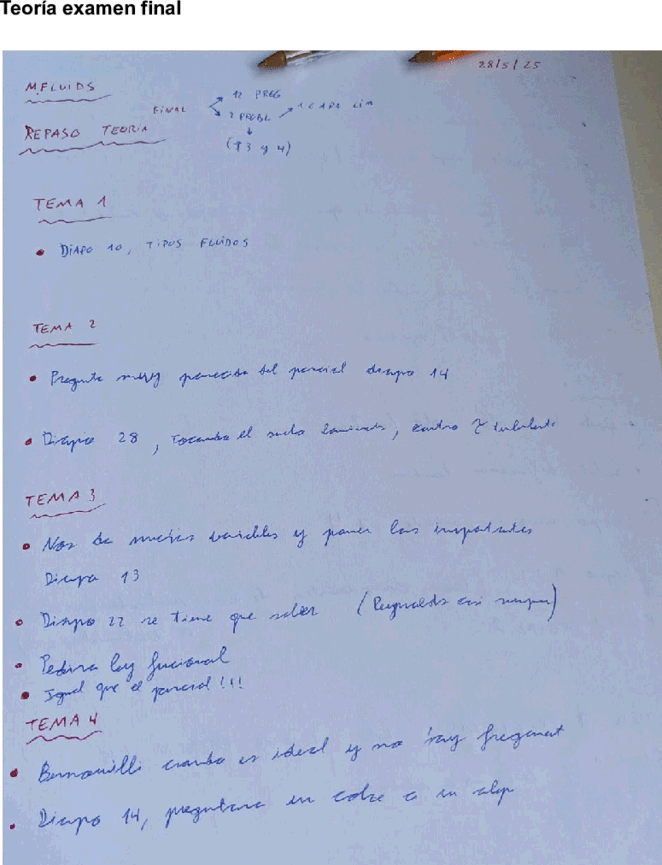 Teoría examen final
28/5/25
M.FLUIDS
FINAL
12 PREG
2 PROBL → 1 CAPA LIM
(T3 y 4)
REPASO TEORIA
TEMA 1
• DIAPO 10, TIPOS FLUIDOS
TEMA 2
• Pregunta muy parecida del parcial diapo 14
• Diapo 28, tocando el suelo laminada, centro turbulento
TEMA 3
• Nos da muchas variables y poner las importantes
Diapo 13
• Diapo 22 se tiene que saber (Reynolds casi siempre)
• Pedira ley funcional
• Igual que el parcial !!!
TEMA 4
• Bernouilli cuando es ideal y no hay
• Diapo 14, preguntara un